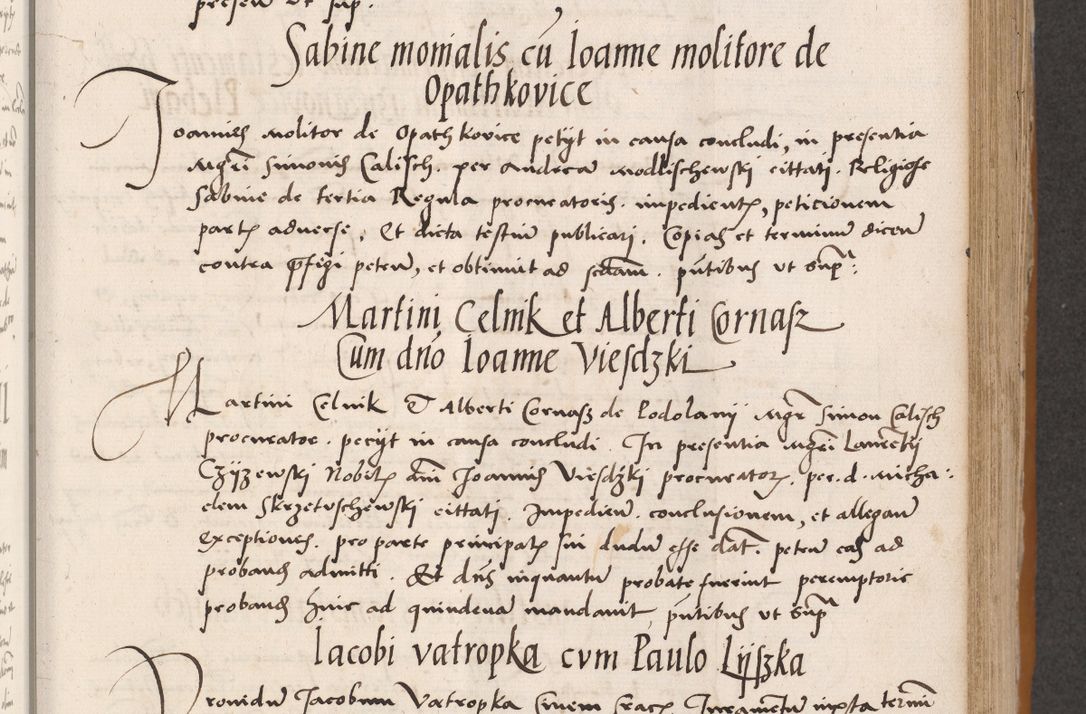 presen ut sup.
Sabine monialis cū Ioanne molitore de
Opathkovice
Joannes molitor de Opathkovice petijt in causa concludi, in presentia
Mgri Simonis Calisch. per Andream Modlischewskj cittati. Religiose
Sabine de tertia Regula procuratoris. impedient, peticionem
part adverse, Et dicta testiū publicarj. Copias et terminū dicēn
contra pfigi petēn, et obtinuit ad scdam. pntibus ut supr:
Martini Celnik et Alberti Cornasz
Cum dno Ioanne Viesdzki
Martini Celnik Et Alberti Cornasz de Podolanij Mgr Simon Calisch
procurator. petijt in causa concludi. In presentia Mgri Laurētij
Czijzewskj Nobil dni Joannis Viesdzkj procurator. per. d. Micha:
elem Skrzetuschewskj cittati. Impediēn. conclusionem, et allegān
exceptiones. pro parte principal sui dudū esse dat. petēn eas ad
proband admitti. Et dns inquantū probate fuerint peremptorie
proband hinc ad quindenā mandavit, pntibus ut supr
Iacobi vatropka cvm Paulo Lijszka
Providū Jacobum Vatropka Civem Crac. Iuramētū iuxta termin